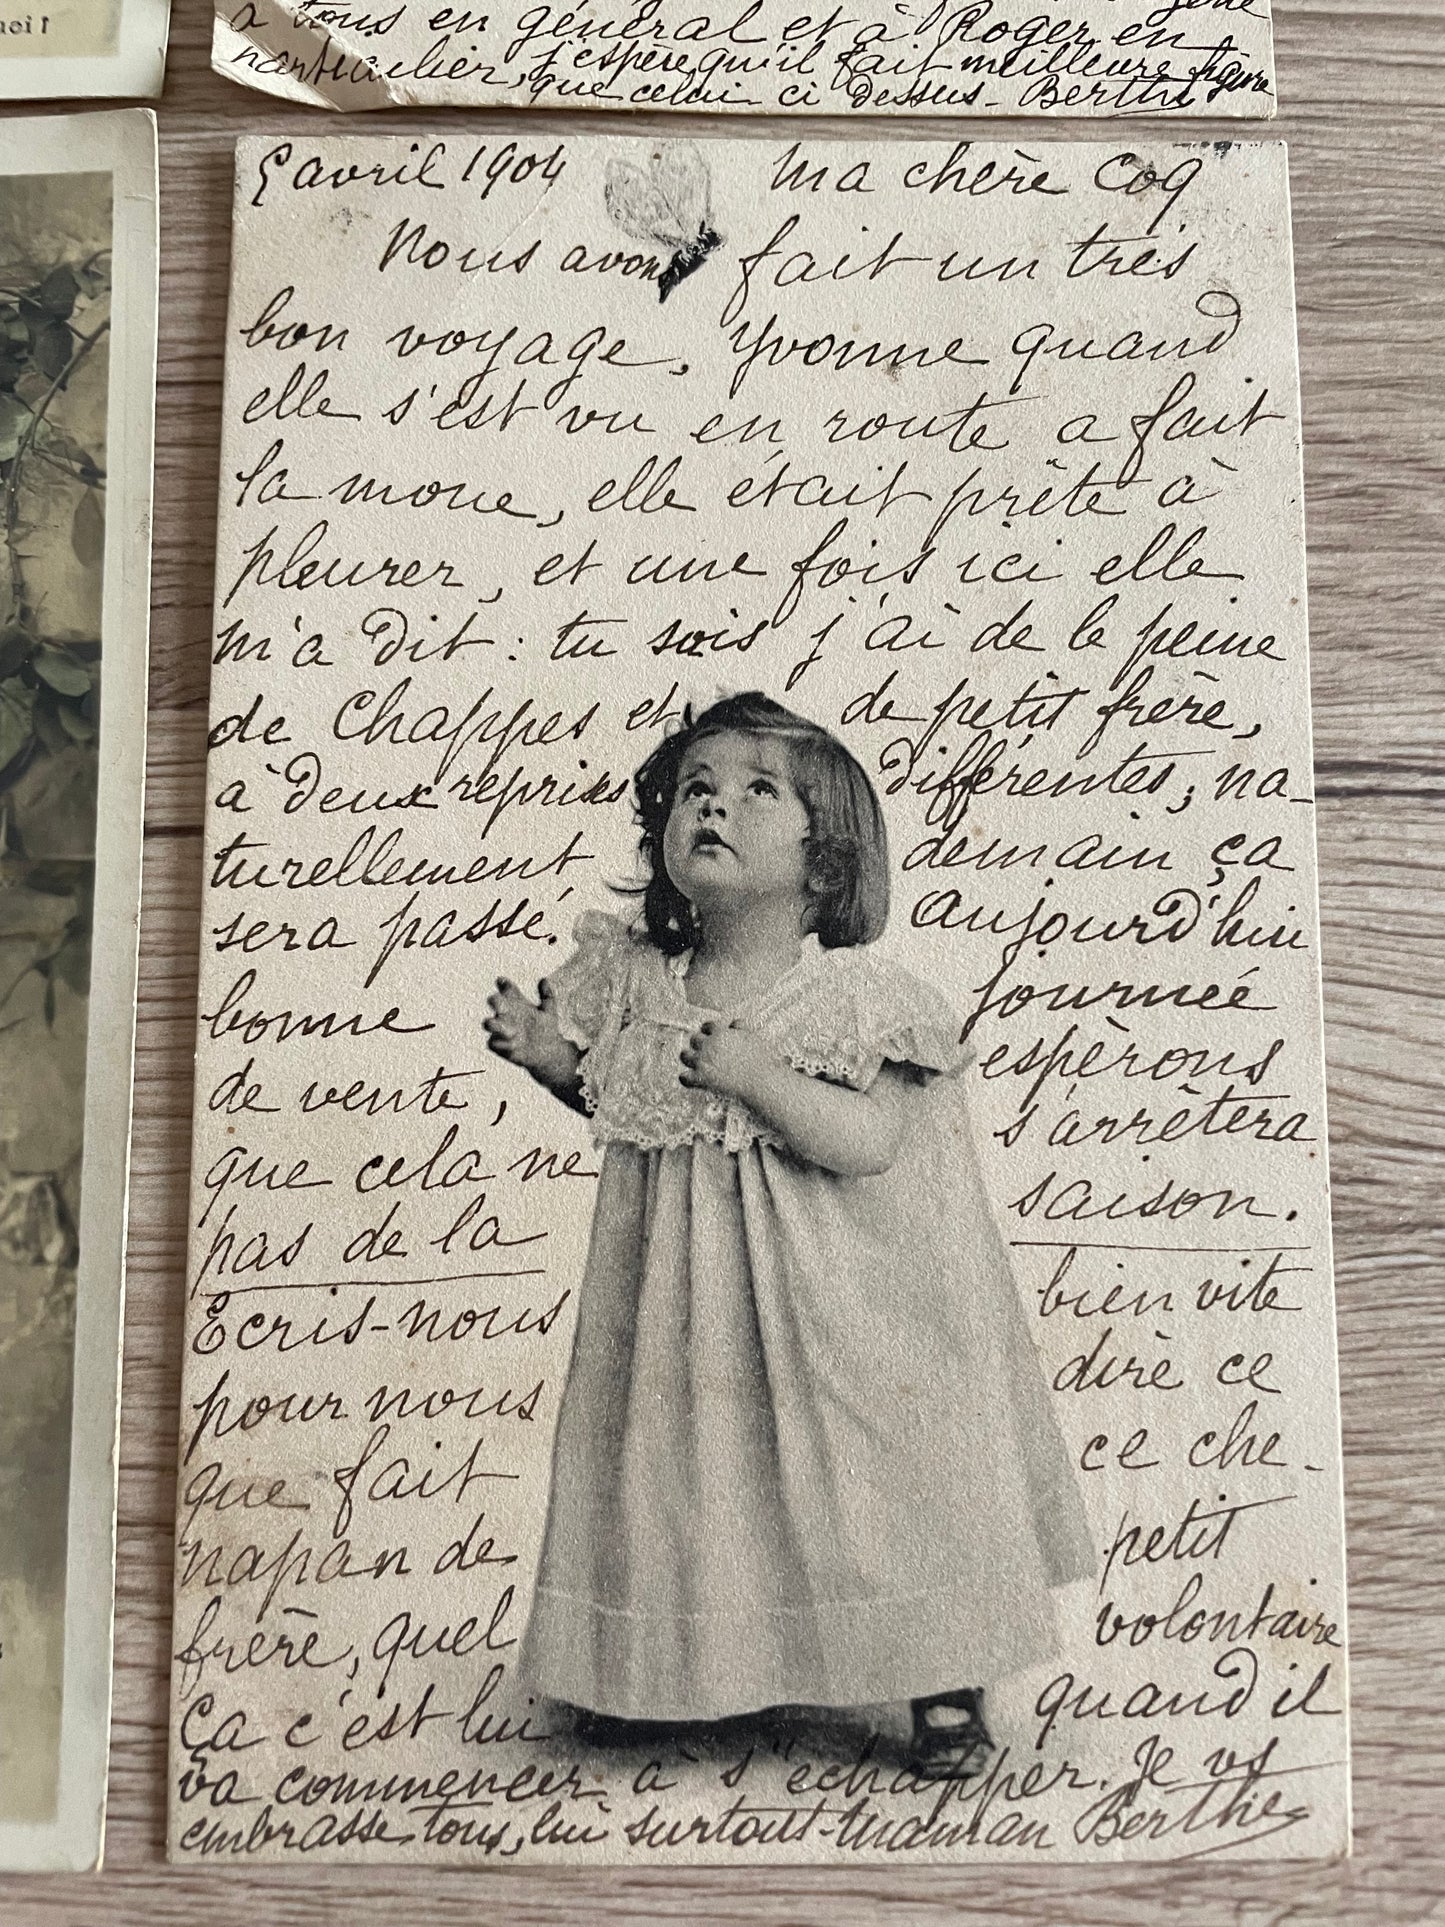 noi!
à tous en général et à Roger en
particulier, j'espère qu'il fait meilleure figure
que celui ci dessus - Berthe
5 avril 1904 Ma chère Coq
Nous avons fait un très
bon voyage, Yvonne quand
elle s'est vu en route a fait
la moue, elle était prête à
pleurer, et une fois ici elle
m'a dit : tu sais j'ai de la peine
de Chappes et de petit frère,
à deux reprises différentes, na-
turellement demain ça
sera passé. Aujourd'hui
bonne journée
de vente, espèrons
que cela ne s'arrêtera
pas de la saison.
Ecris-nous bien vite
pour nous dire ce
que fait ce che-
napan de petit
frère, quel volontaire
ça c'est lui quand il
va commencer à s'échapper. Je vs
embrasse tous, lui surtout - Maman Berthe